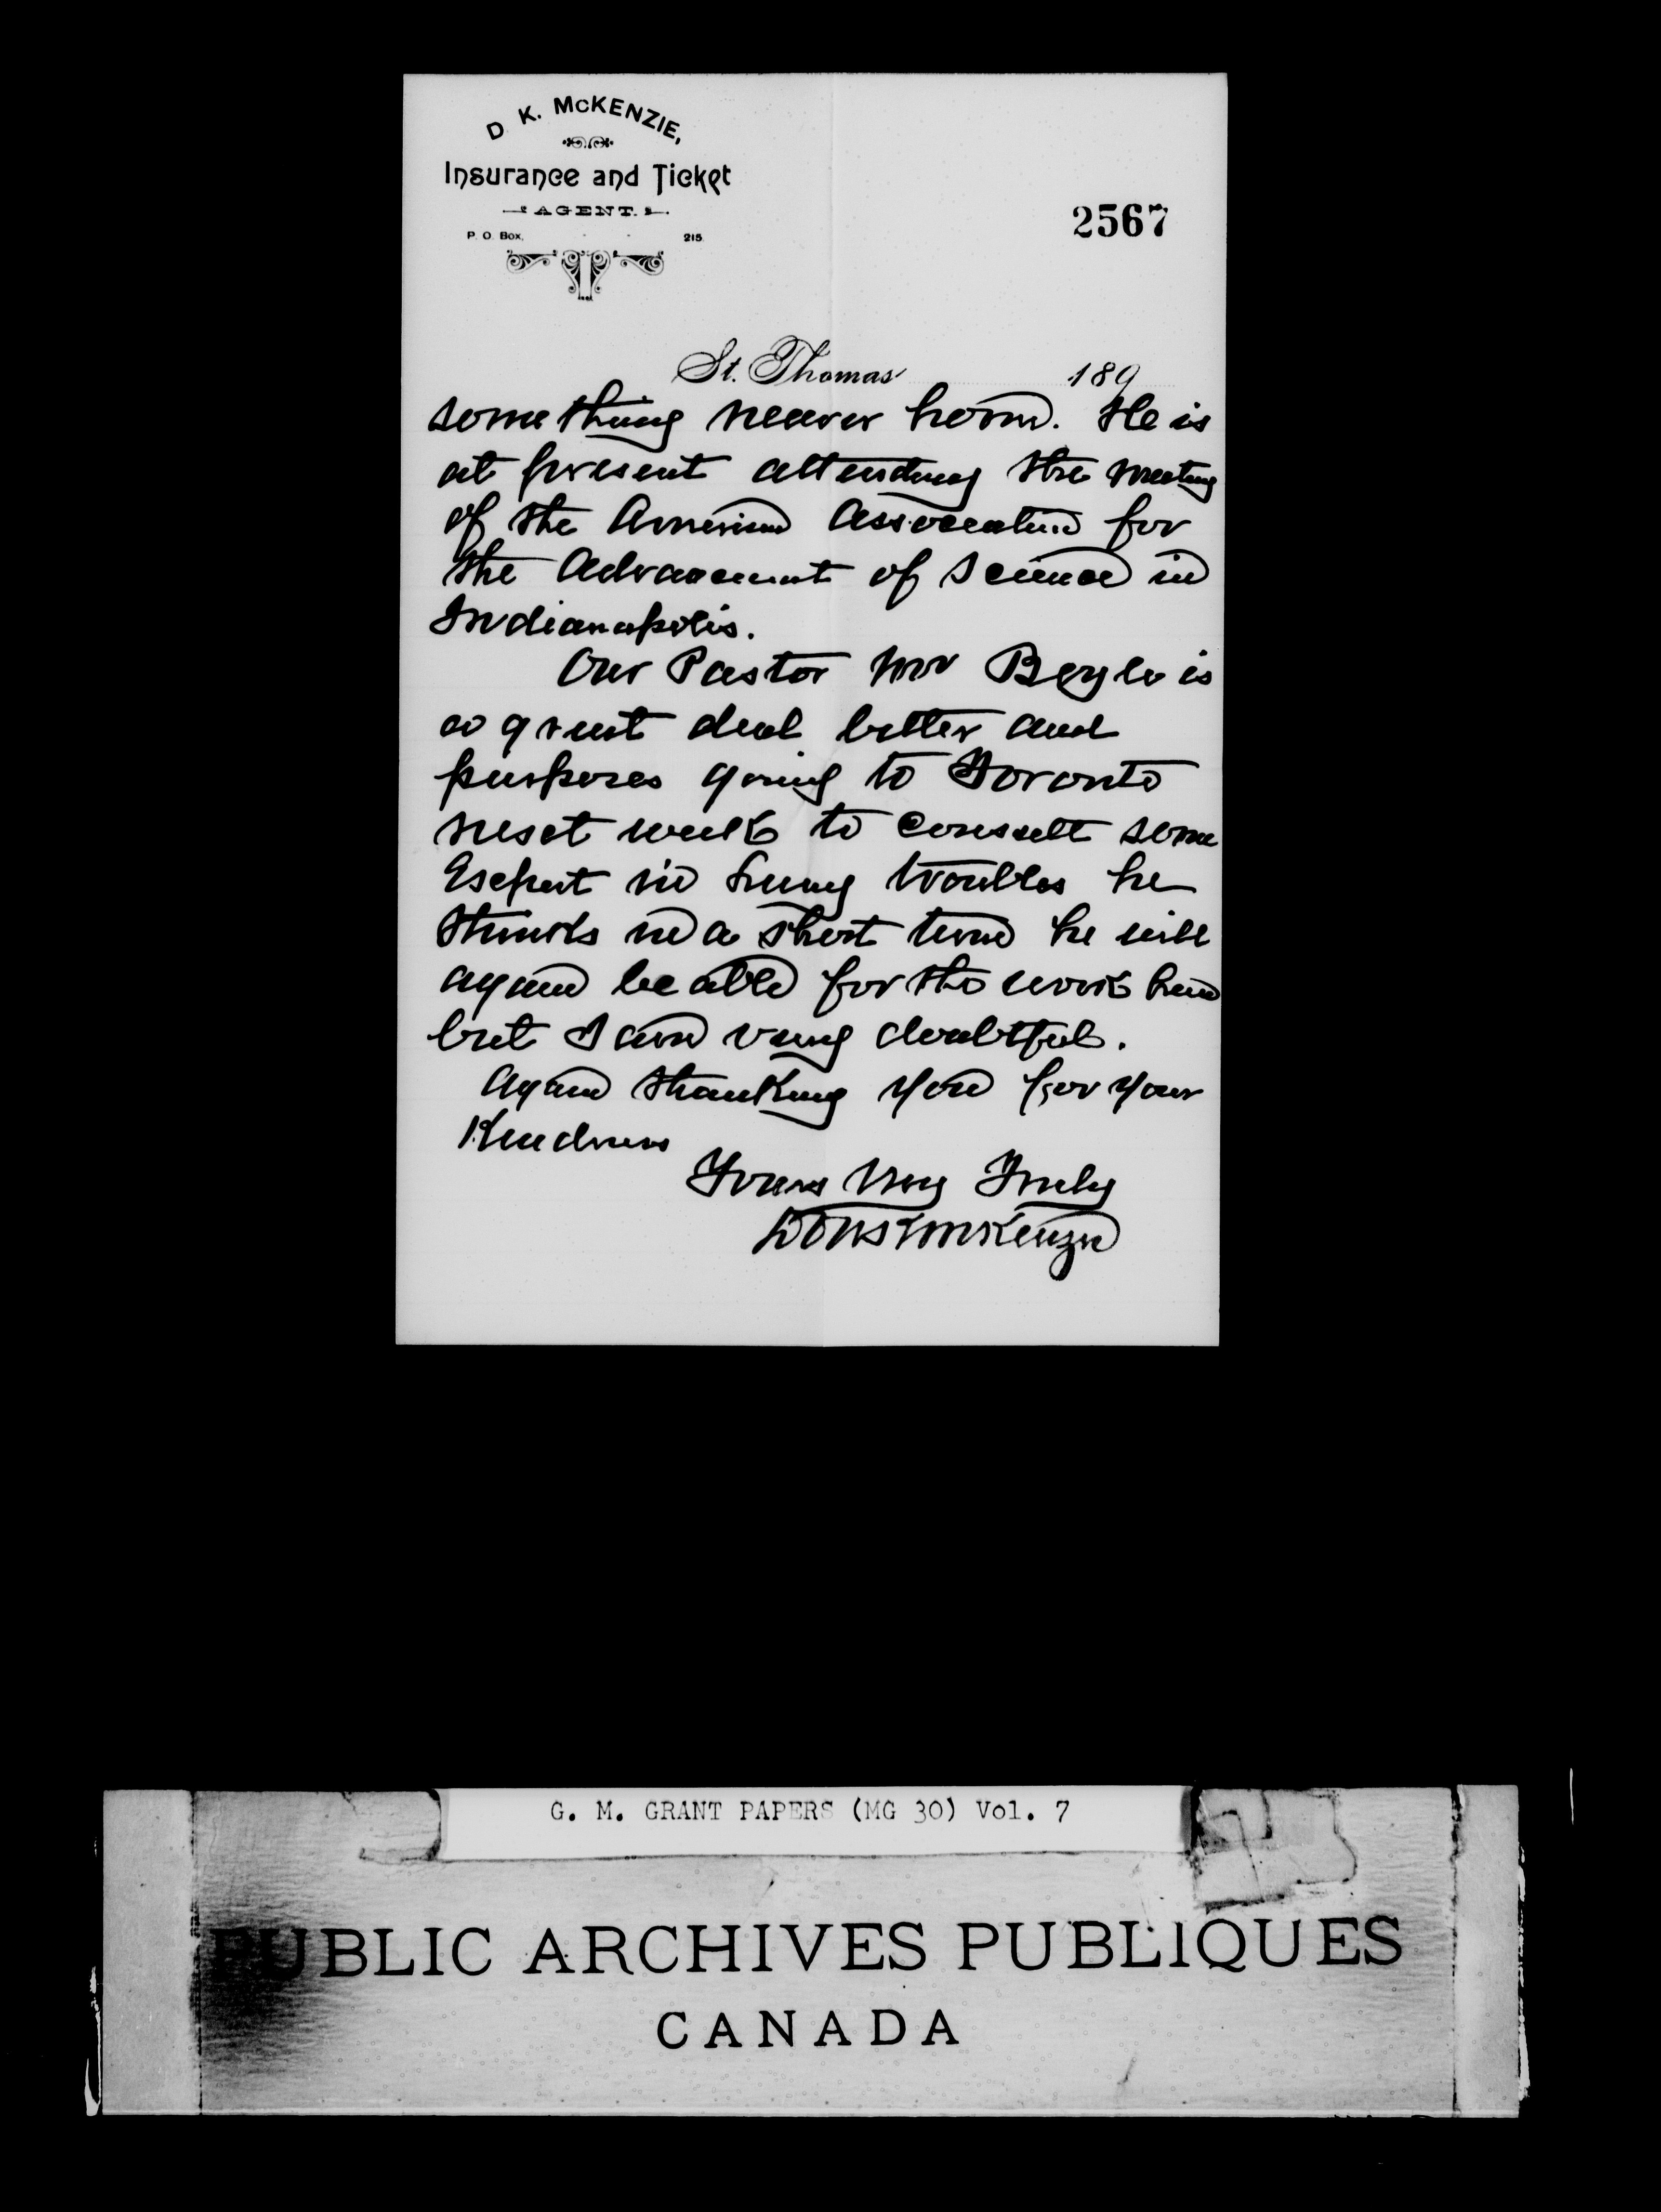 D. K. McKENZIE,
Insurance and Ticket
AGENT.
P. O. Box, - - 215.
2567
St. Thomas 189
something nearer home. He is
at present attending the meeting
of the American Association for
the Advancement of Science in
Indianapolis.
Our Pastor Mr Boyle is
a great deal better and
purposes going to Toronto
next week to consult some
Expert in Lung troubles he
thinks in a short time he will
again be able for the work here
but I am very doubtful.
Again thanking you for your
Kindness
Yours Very Truly
McKenzie
G. M. GRANT PAPERS (MG 30) Vol. 7
PUBLIC ARCHIVES PUBLIQUES
CANADA